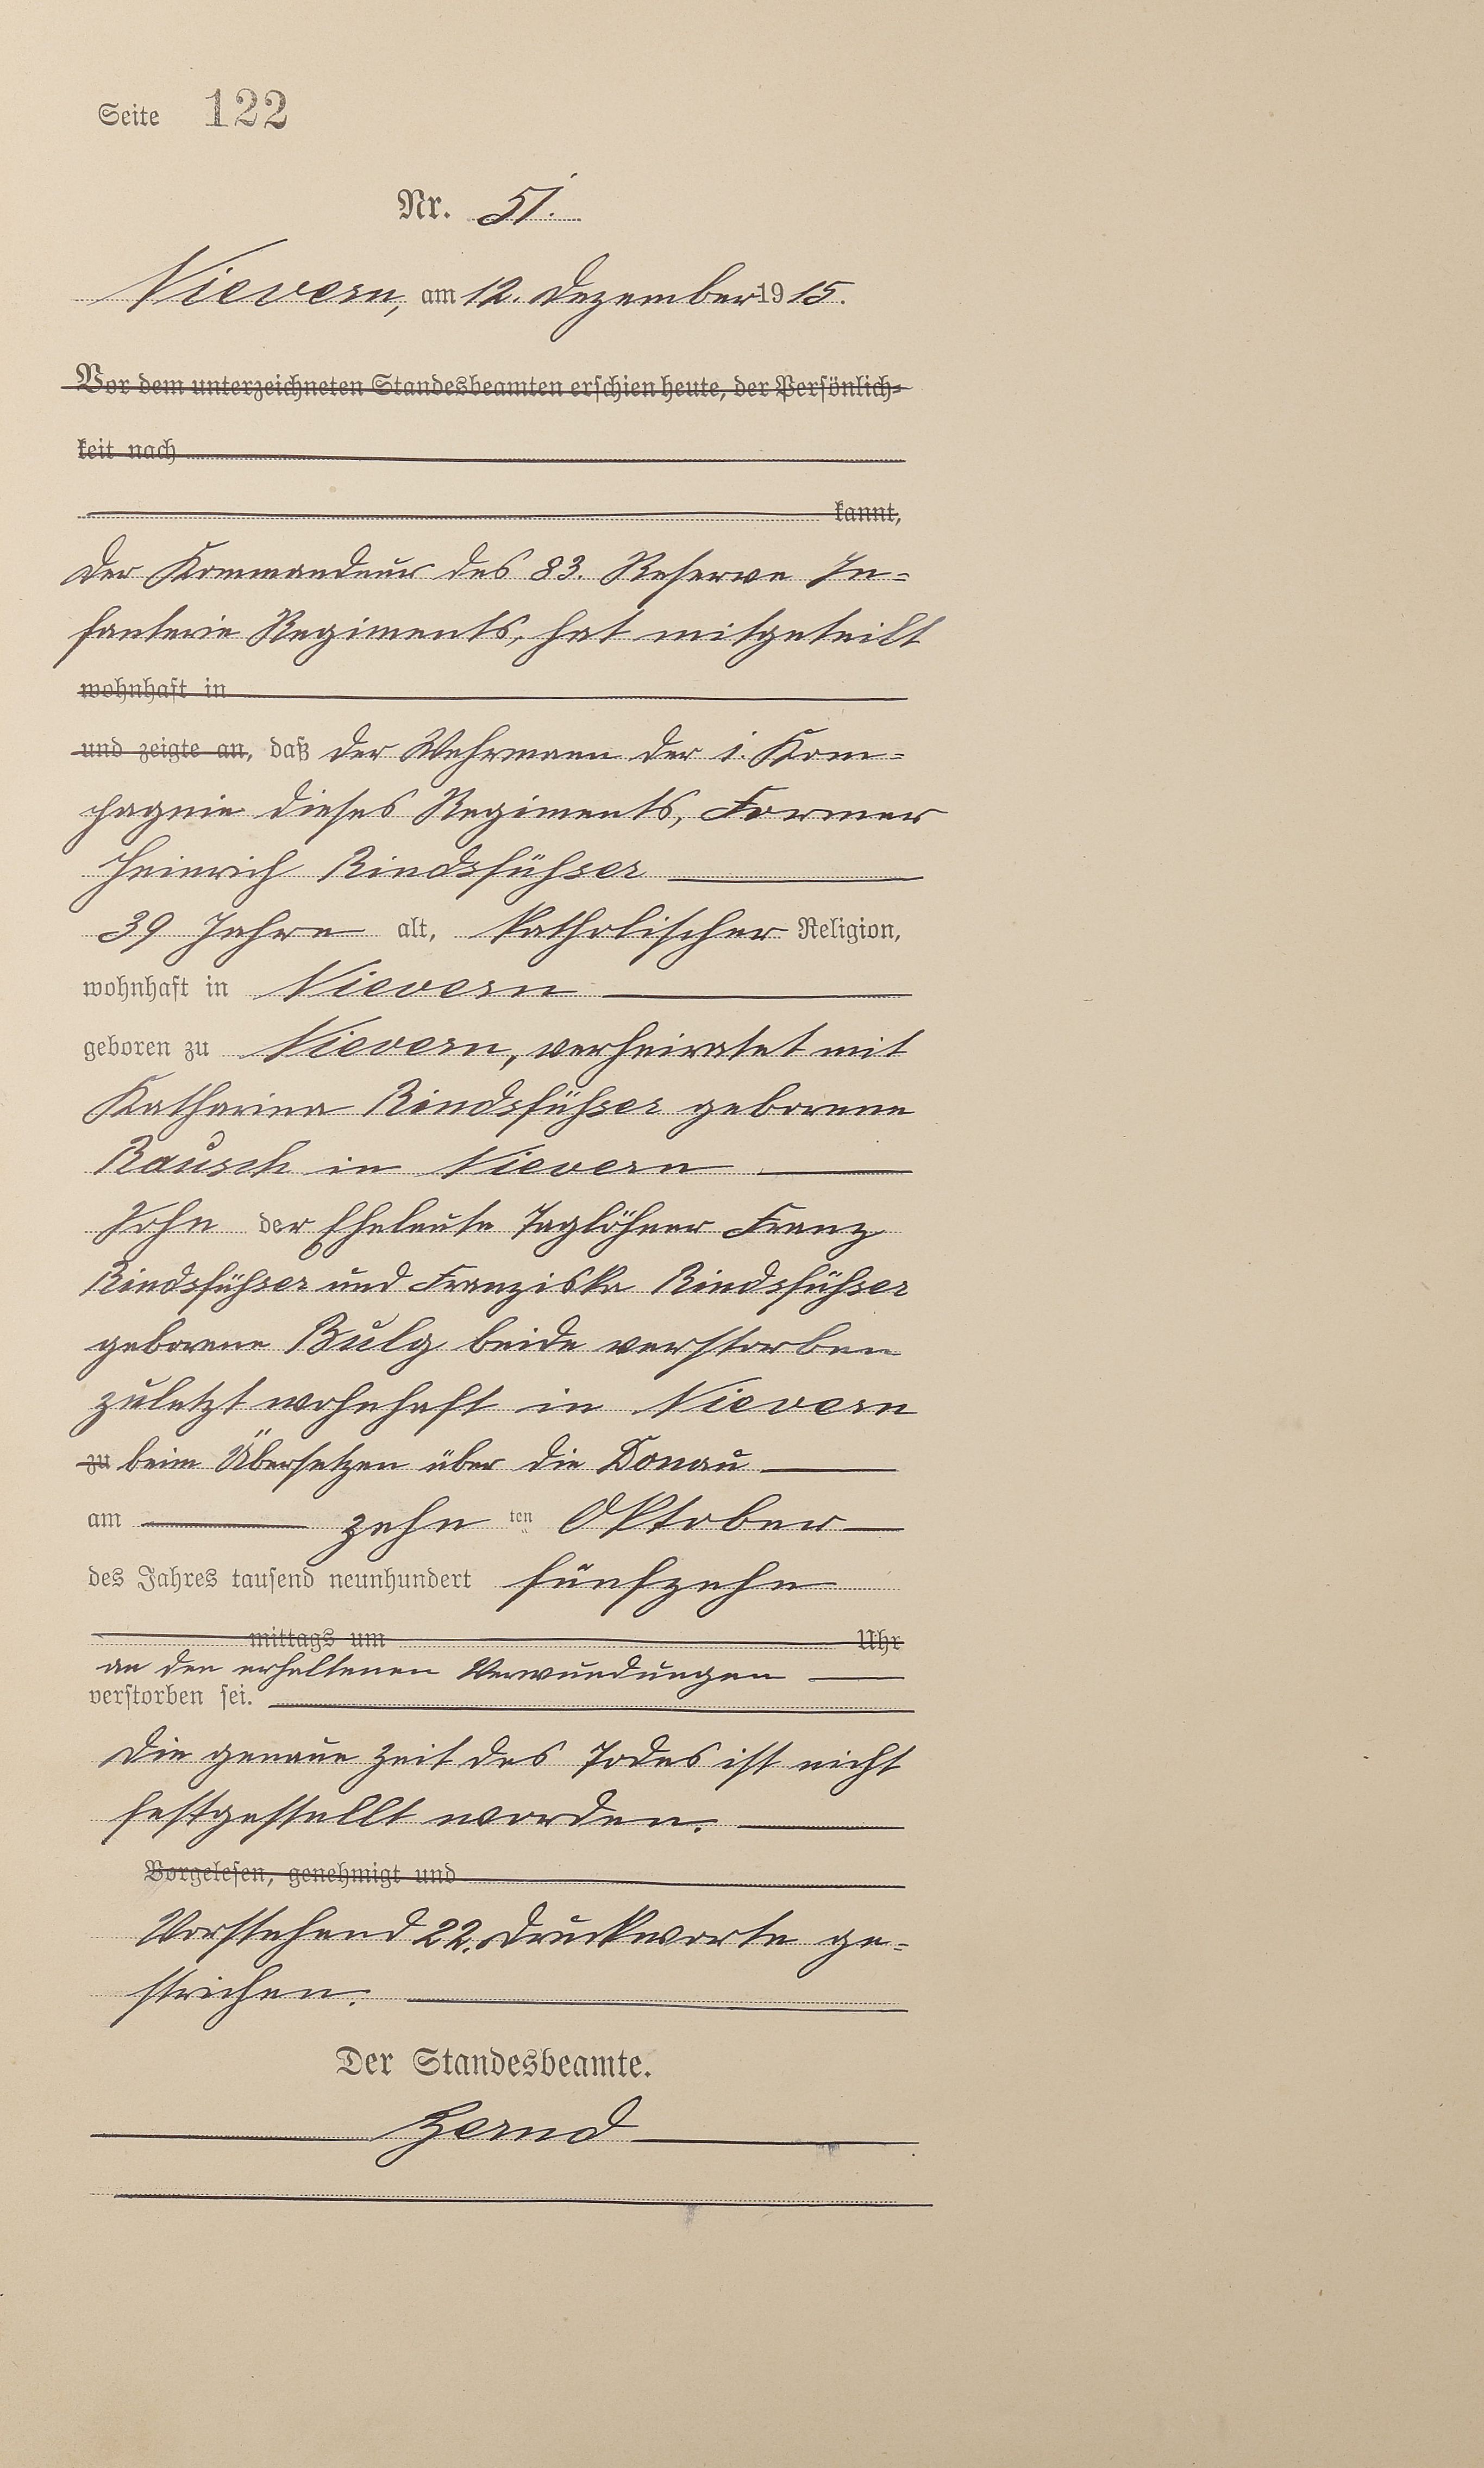 Seite 122
Nr. 51.
Nievern, am 12. Dezember 1915.
Vor dem unterzeichneten Standesbeamten erschien heute, der Persönlich-
keit nach
kannt,
Der Kommandeur des 83. Reserve In-
fanterie Regiments, hat mitgeteilt
wohnhaft in
und zeigte an, daß der Wehrmann der 1. Kom-
pagnie dieses Regiments, Former
Heinrich Rindsfüßer
39 Jahre alt, katholischer Religion,
wohnhaft in Nievern
geboren zu Nievern, verheiratet mit
Katharina Rindsfüßer geborene
Rausch in Nievern
Sohn der Eheleute Taglöhner Franz
Rindsfüßer und Franziska Rindsfüßer
geborene Bulg beide verstorben
zuletzt wohnhaft in Nievern
zu beim Übersetzen über die Donau
am zehn ten Oktober
des Jahres tausend neunhundert fünfzehn
mittags um Uhr
an den erhaltenen Verwundungen
verstorben sei.
Die genaue Zeit des Todes ist nicht
festgestellt worden.
Vorgelesen, genehmigt und
Vorstehend 22. Druckworte ge-
strichen.
Der Standesbeamte.